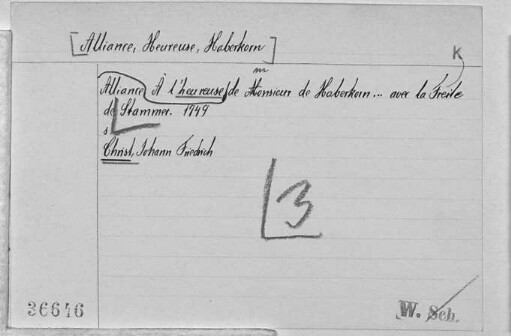 [Alliance, Heureuse, Haberkorn]
K
m
Alliance À l'heureuse de Monsieur de Haberkorn... avec la Freile
de Stammer. 1749
s
Christ, Johann Friedrich
3
36646
W. Sch.